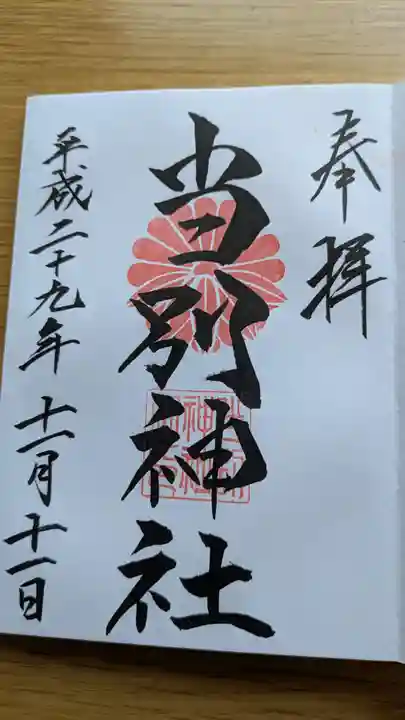 奉拝
当別神社
平成二十九年十一月十一日